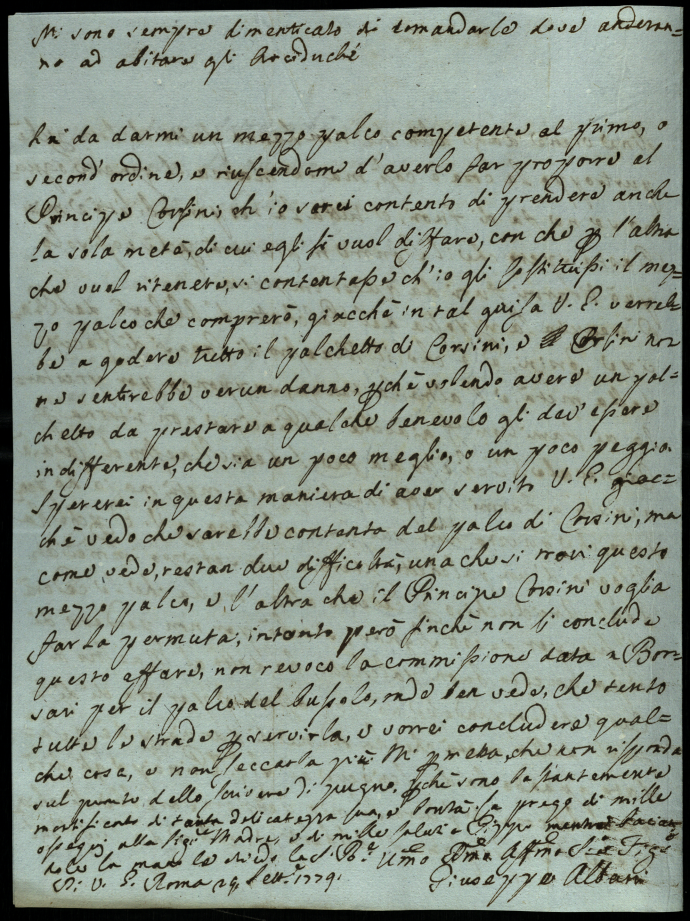 Mi sono sempre dimenticato di domandarle dove anderan=
no ad abitare gli Arciduchi
hà da darmi un mezzo palco competente al primo, o
second'ordine, e riuscendome d'averlo far proporre al
Principe Corsini, ch'io sarei contento di prendere anche
la sola metà, di cui egli si vuol disfare, con che p l'altra
che vuol ritenere, si contentasse ch'io gli sostituissi il mez=
zo palco che comprerò, giacchè in tal guisa V. E. verreb=
be a godere tutto il palchetto di Corsini, e Corsini non
ne sentirebbe verun danno, pchè volendo avere un pal=
chetto da prestare a qualche benevolo gli dev'essere
indifferente, che sia un poco meglio, o un poco peggio.
Spererei in questa maniera di aver servito V. E. giac=
chè vedo che sarebbe contenta del palco di Corsini, ma
come vede, restan due difficoltà, una che si trovi questo
mezzo palco, e l'altra che il Principe Corsini voglia
far la permuta, intanto però finchè non si conclude
questo affare, non revoco la commissione data a Bor=
sari per il palco del bussolo, onde ben vede, che tento
tutte le strade p servirla, e vorrei concludere qual=
che cosa, e non seccarla più. Mi pmetta, che non risponda
sul punto dello scrivere di pugno, pchè sono bastantemente
mortificato di tanta delicatezza sua, e bontà. La prego di mille
ossequi alla Sig.ra Madre, e di mille saluti a Pippo
le la mano le chiedo la S. B.e
Di V. E. Roma 29 Sett.e 1779.
Um̃o Aff̃mo
Giuseppe Albani